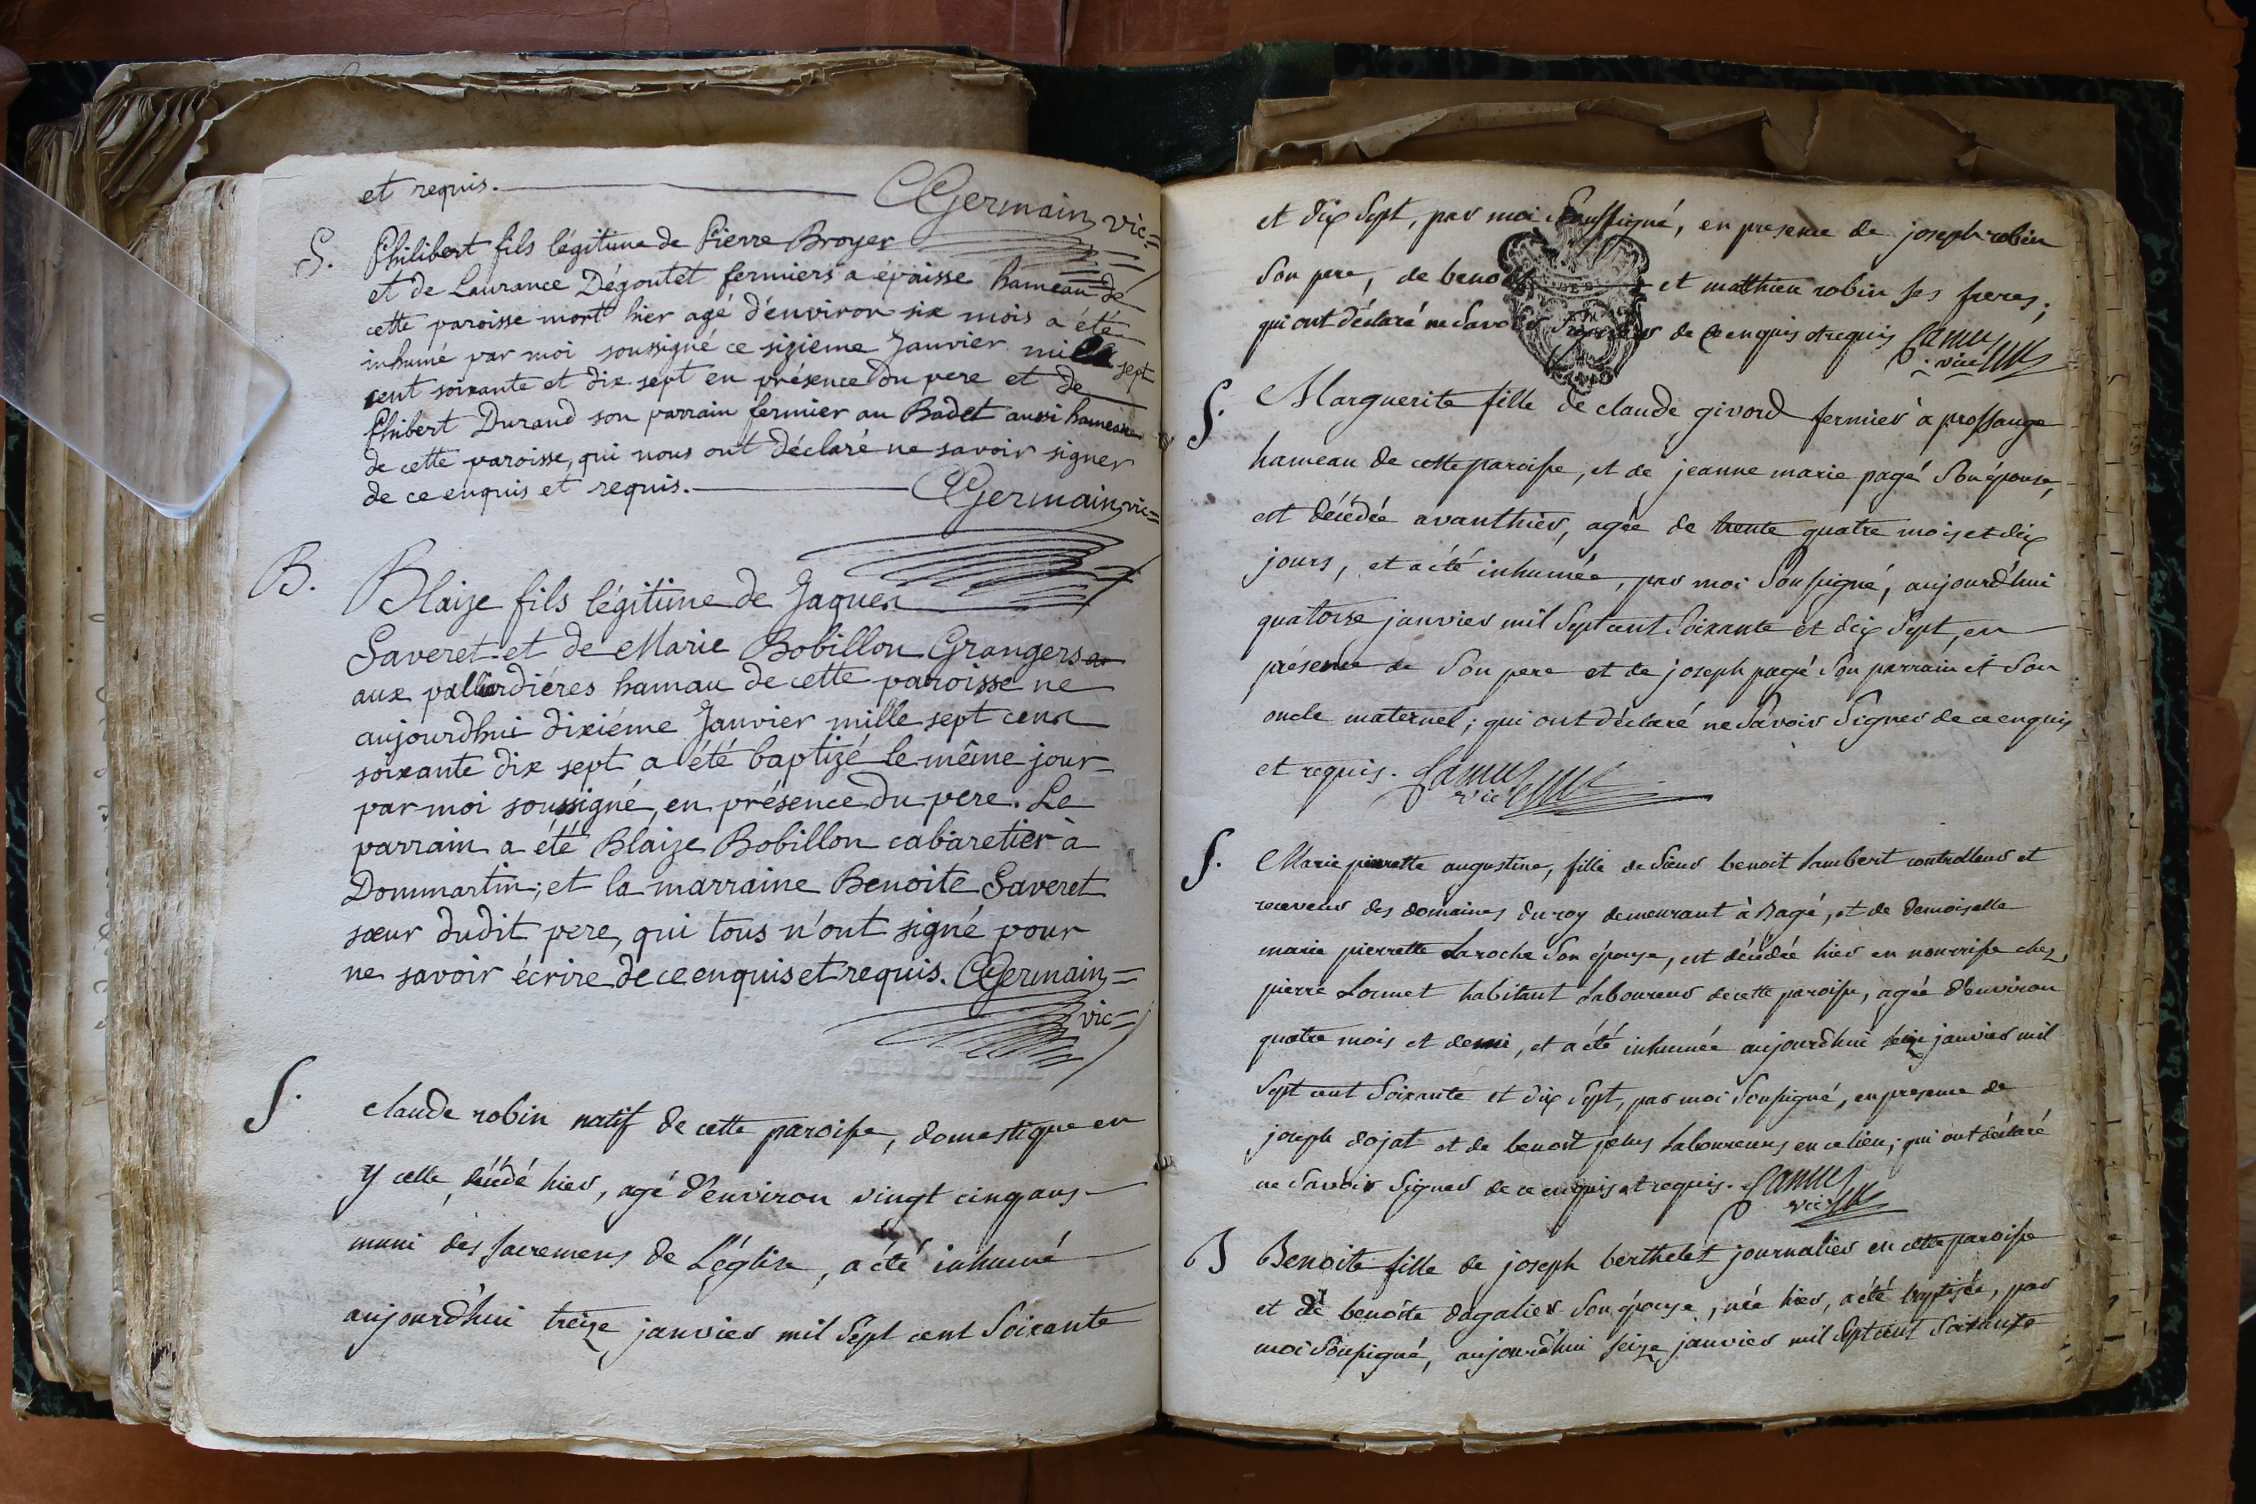 et requis. CGermain vic=
S. Philibert fils légitime de Pierre Broyer
et de Laurance Dégoutet fermiers a épaisse hameau de
cette paroisse mort hier agé d'environ six mois a été
inhumé par moi soussigné ce sizieme Janvier mille sept
cent soixante et dix sept en présence du pere et de
Phibert Durand son parrain fermier au Badet aussi hameau
de cette paroisse, qui nous ont déclaré ne savoir signer
de ce enquis et requis. CGermain vic=
B. Blaize fils légitime de Jaques
Saveret et de Marie Bobillon Grangers
aux palliardiéres hamau de cette paroisse ne
aujourdhui dixiéme Janvier mille sept cent
soixante dix sept a été baptizé le même jour
par moi soussigné, en présence du pere. Le
parrain a été Blaize Bobillon cabaretier à
Dommartin; et la marraine Benoite Saveret
sœur dudit pere, qui tous n'ont signé pour
ne savoir écrire de ce enquis et requis. CGermain=
vic=
S. claude robin natif de cette paroisse, domestique en
y celle, décédé hier, agé d'environ vingt cinq ans
muni des sacremens de L'église, a été inhumé
aujourd'hui treize janvier mil sept cent soixante
et dix sept, par moi soussigné, en presence de joseph robin
son pere, de benoit et matthieu robin ses freres;
qui ont déclaré ne savoir signer de ce enquis et requis Camus
vic
S. Marguerite fille de claude givord fermier à prossange
hameau de cette paroisse, et de jeanne marie pagé son épouse,
est décédée avanthier, agée de trente quatre mois et dix
jours, et a été inhumée, par moi soussigné, aujourd'hui
quatorse janvier mil sept cent soixante et dix sept, en
présence de son pere et de joseph pagé son parrain et son
oncle maternel; qui ont déclaré ne savoir signer de ce enquis
et requis. Camus
vic
S. Marie pierrette augustine, fille de sieur benoit Lambert controlleur et
receveur des domaines du roy demeurant à Bagé, et de demoiselle
marie pierrette Laroche son épouse, est décédée hier en nourrisse chez
pierre habitant Laboureur de cette paroisse, agée d'environ
quatre mois et demi, et a été inhumée aujourdhui seize janvier mil
sept cent soixante et dix sept, par moi soussigné, en presence de
joseph dojat et de benoit Laboureurs en ce lieu; qui ont déclaré
ne savoir signer de ce enquis et requis. Camus
vic
B Benoite fille de joseph berthelet journalier en cette paroisse
et de benoîte dagalier son épouse, née hier, a été baptisée, par
moi soussigné, aujourd'hui seize janvier mil sept cent soixante